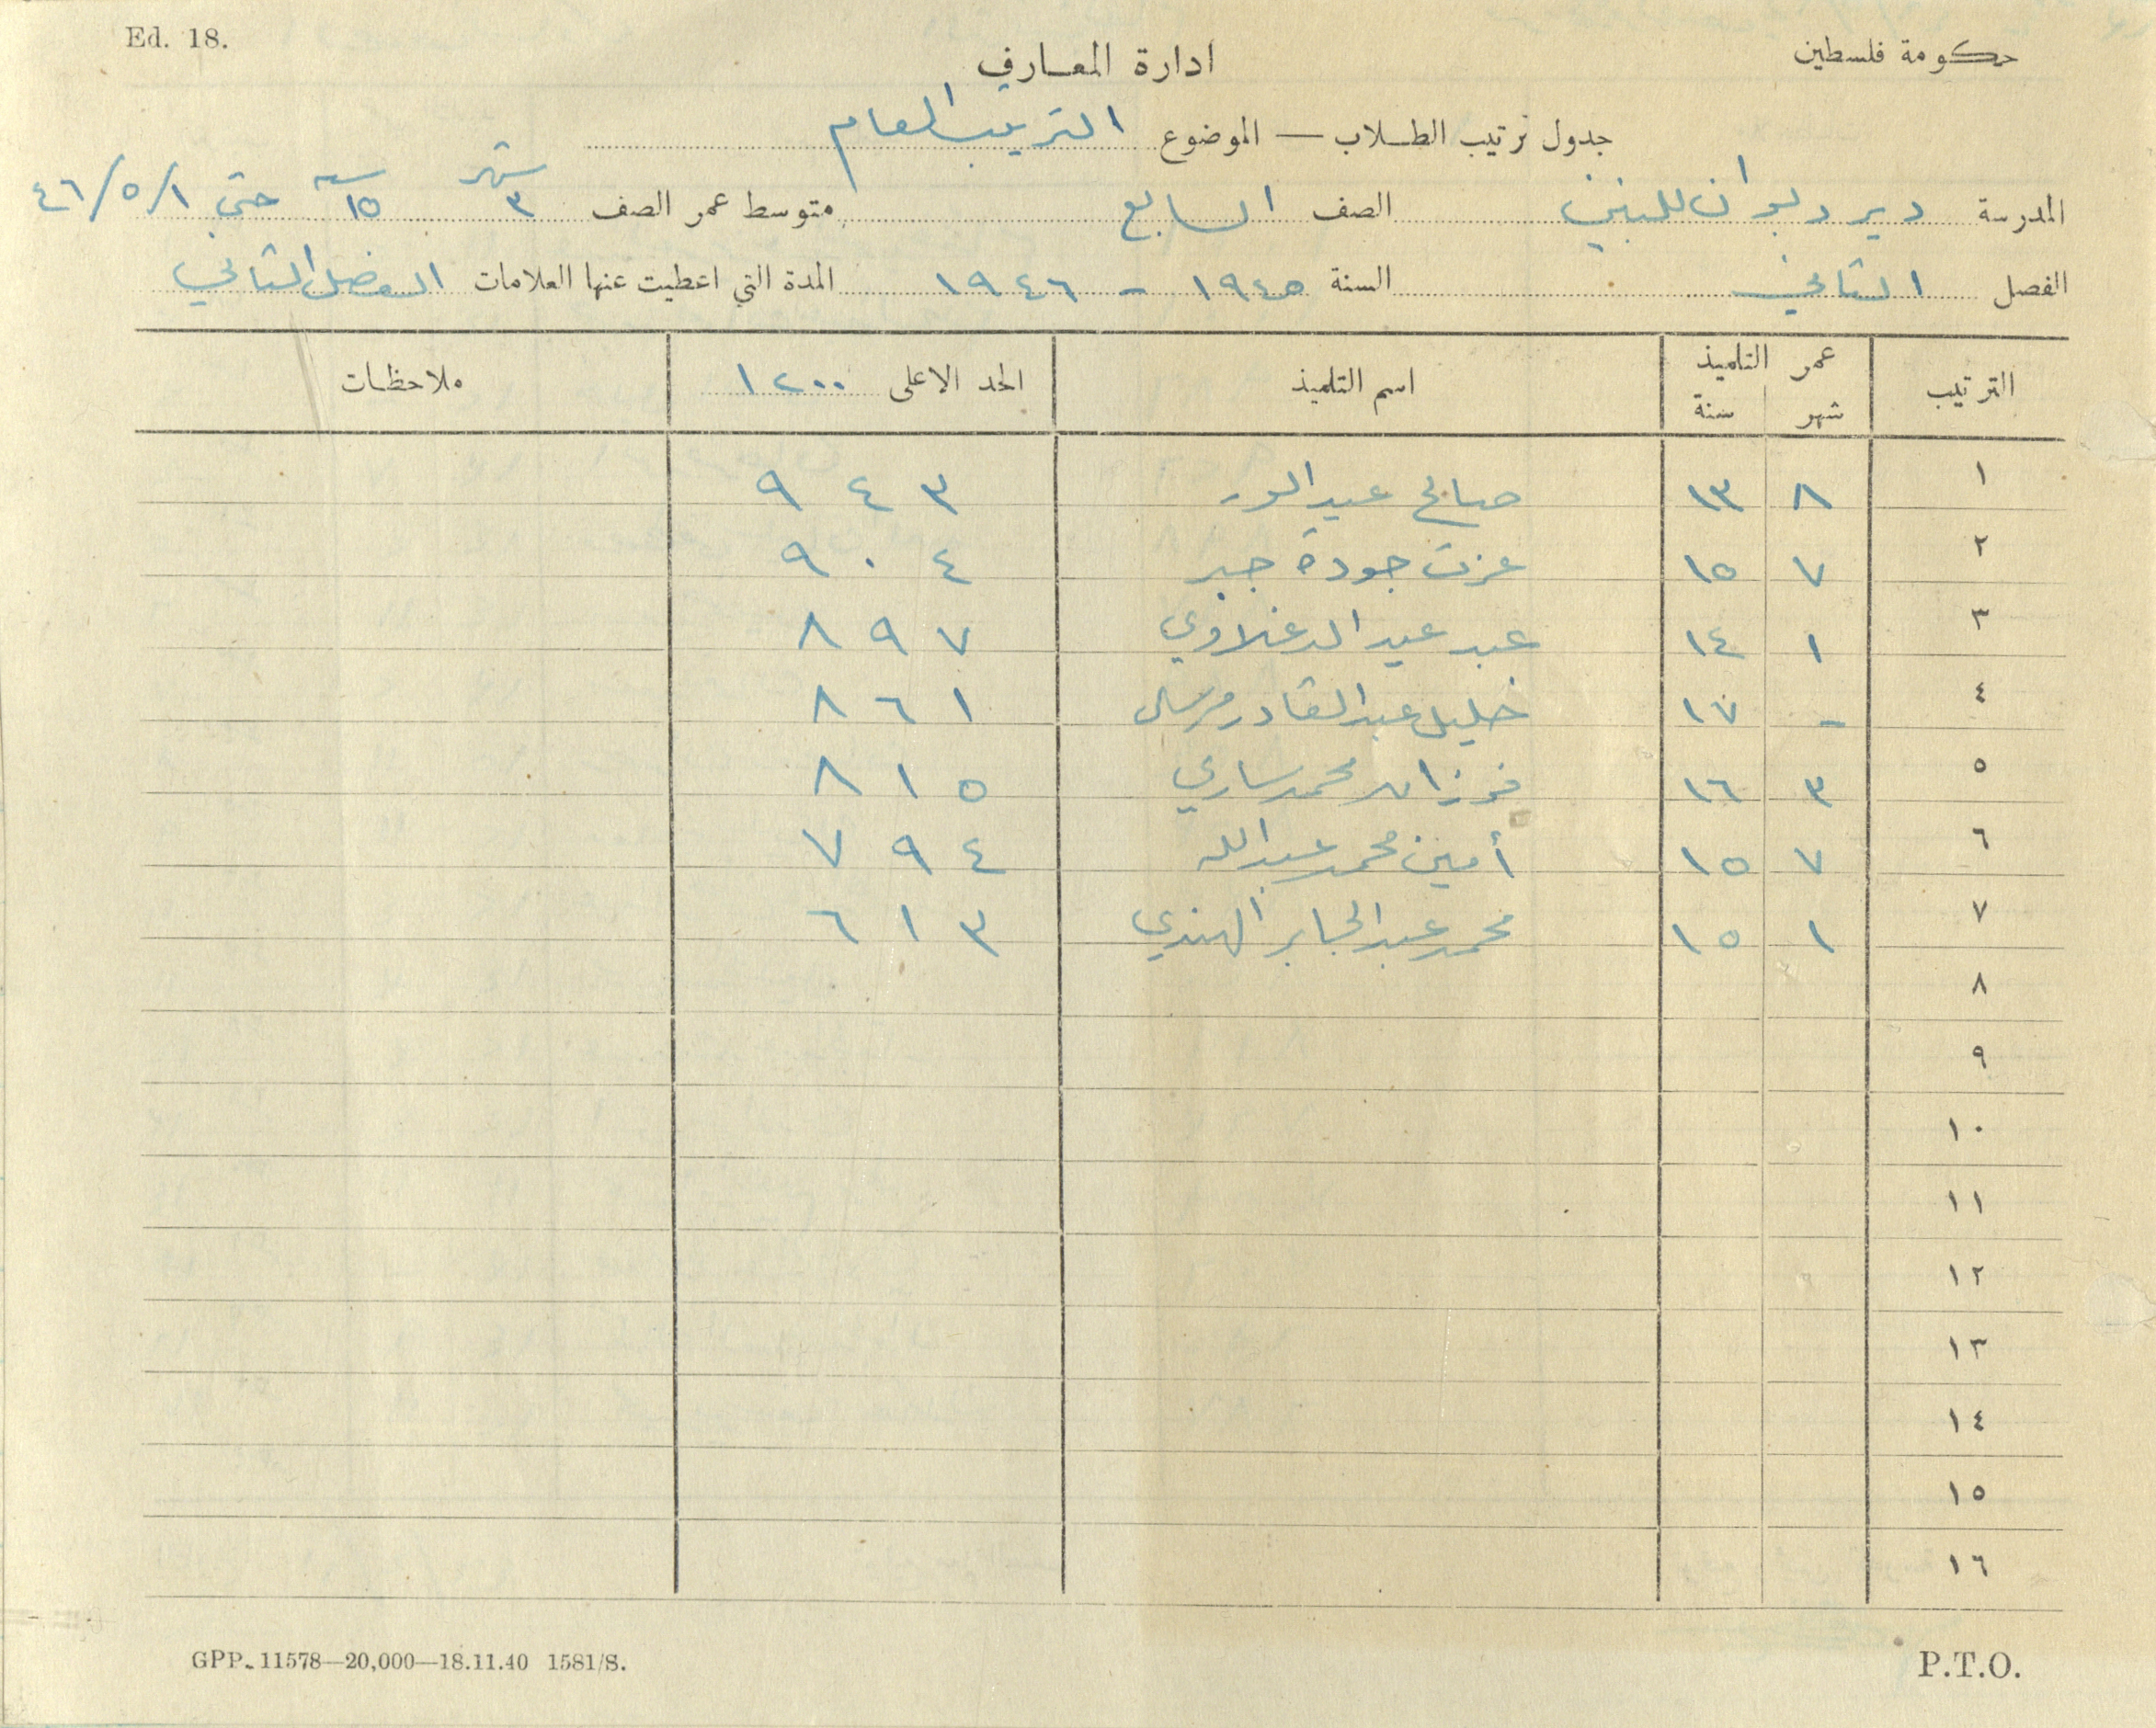 Ed. 18.
حكومة فلسطين
ادارة المعارف
جدول ترتيب الطلاب — الموضوع الترتيب العام
المدرسة دير دبوان للبنين الصف السابع متوسط عمر الصف ٣ شهر ١٥ سنة حتى ٤٦/٥/١
الفصل الثاني السنة ١٩٤٥ - ١٩٤٦ المدة التي اعطيت عنها العلامات الفصل الثاني
الترتيب عمر التلميذ شهر سنة اسم التلميذ الحد الاعلى ١٢٠٠ ملاحظات
١ ٨ ١٣ صالح عبد ٩٤٣
٢ ٧ ١٥ عزت جودة جبر ٩٠٤
٣ ١ ١٤ عبد عيد ٨٩٧
٤ - ١٧ خليل عبد القادر ٨٦١
٥ ٣ ١٦ فوزان محمد ساري ٨١٥
٦ ٧ ١٥ أمين محمد عبدالله ٧٩٤
٧ ١ ١٥ محمد عبد الجابر الهندي ٦١٣
٨
٩
١٠
١١
١٢
١٣
١٤
١٥
١٦
GPP. 11578—20,000—18.11.40 1581/S.
P.T.O.